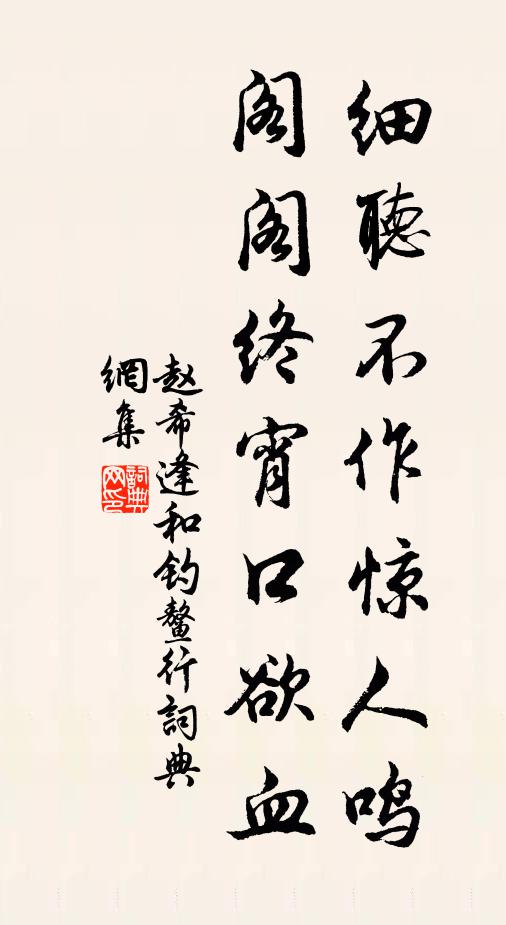 细聽不作惊人鸣
阁阁终宵口欲血
赵希逢和钓鳌行詞典
網集
詞典网印